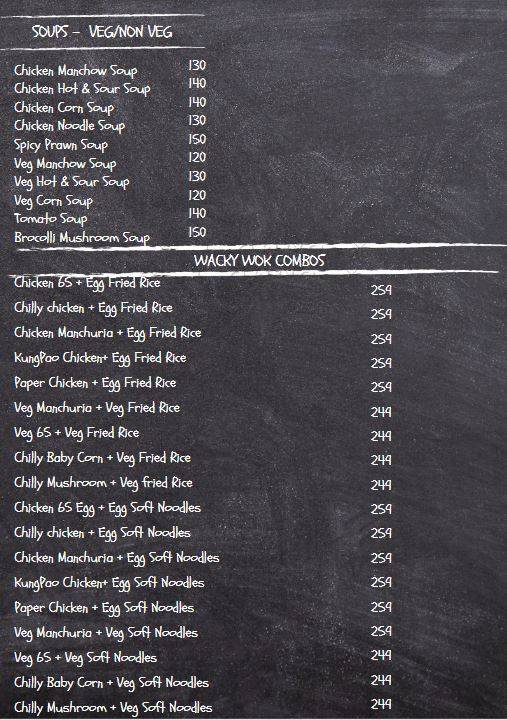 SOUPS - VEG/NON VEG
Chicken Manchow Soup 130
Chicken Hot & Sour Soup 140
Chicken Corn Soup 140
Chicken Noodle Soup 130
Spicy Prawn Soup 150
Veg Manchow Soup 120
Veg Hot & Sour Soup 130
Veg Corn Soup 120
Tomato Soup 140
Brocolli Mushroom Soup 150
WACKY WOK COMBOS
Chicken 65 + Egg Fried Rice 259
Chilly chicken + Egg Fried Rice 259
Chicken Manchuria + Egg Fried Rice 259
KungPao Chicken+ Egg Fried Rice 259
Paper Chicken + Egg Fried Rice 259
Veg Manchuria + Veg Fried Rice 249
Veg 65 + Veg Fried Rice 249
Chilly Baby Corn + Veg Fried Rice 249
Chilly Mushroom + Veg fried Rice 249
Chicken 65 Egg + Egg Soft Noodles 259
Chilly chicken + Egg Soft Noodles 259
Chicken Manchuria + Egg Soft Noodles 259
KungPao Chicken+ Egg Soft Noodles 259
Paper Chicken + Egg Soft Noodles 259
Veg Manchuria + Veg Soft Noodles 259
Veg 65 + Veg Soft Noodles 249
Chilly Baby Corn + Veg Soft Noodles 249
Chilly Mushroom + Veg Soft Noodles 249